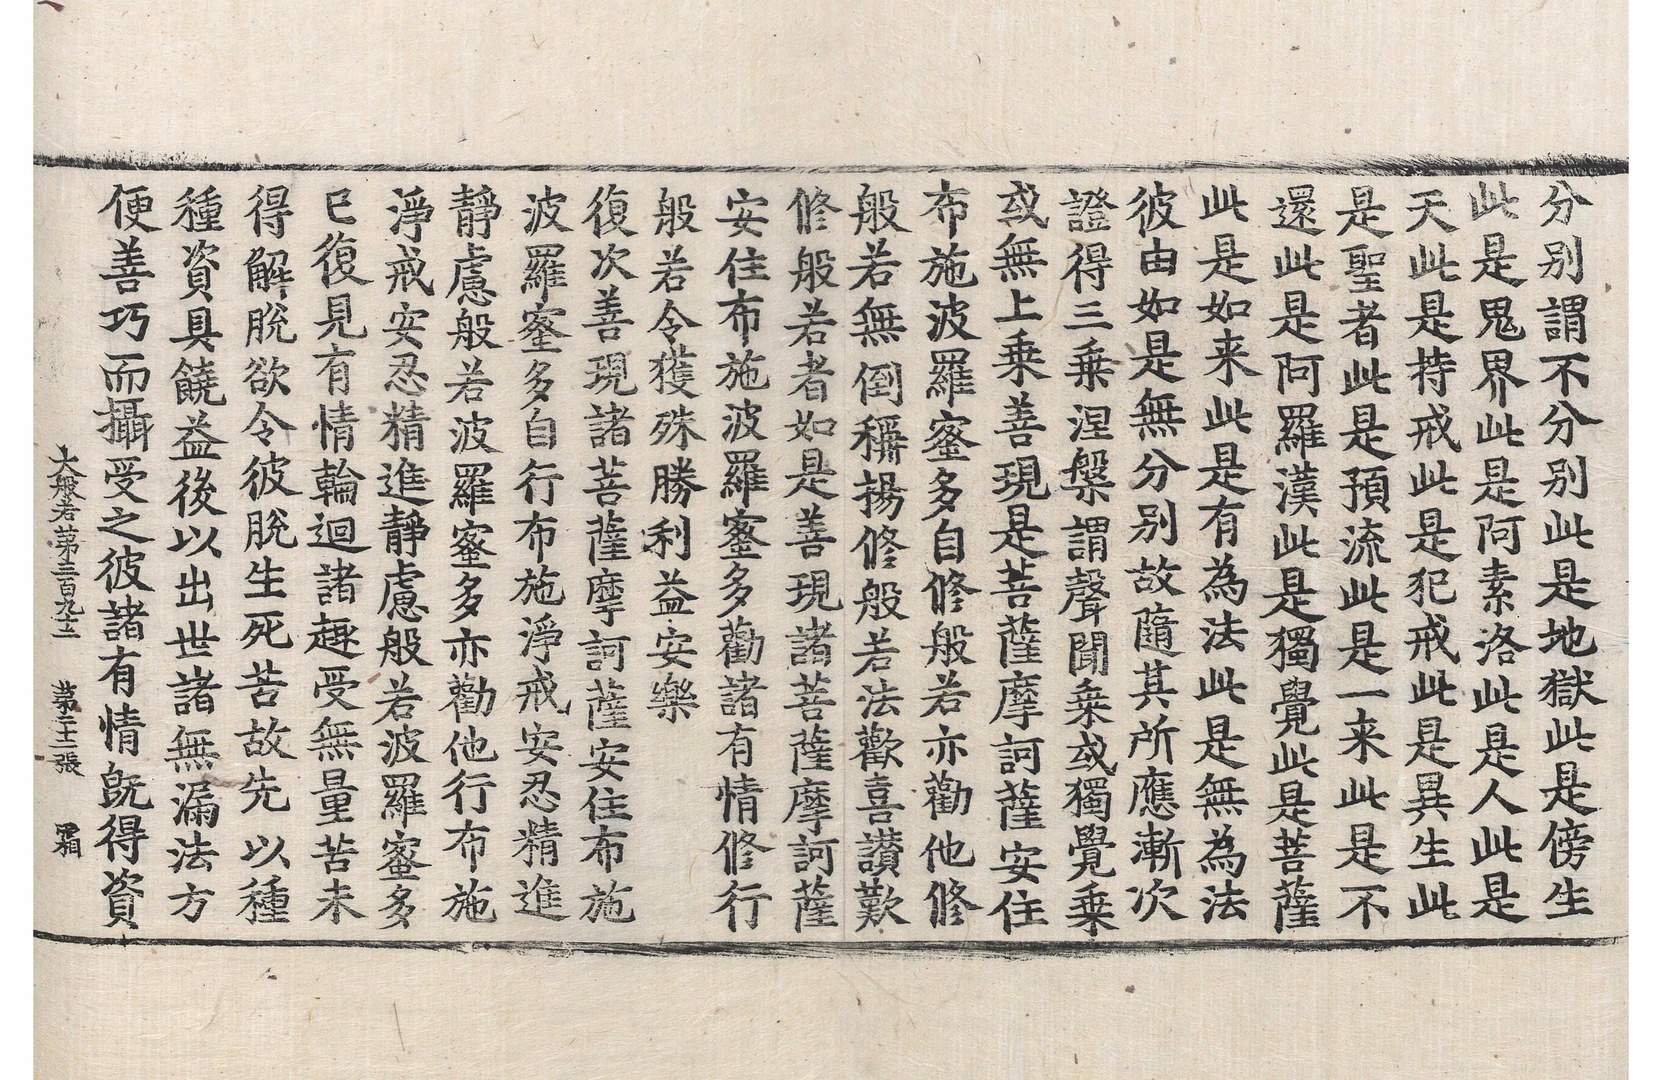 分別謂不分別此是地獄此是傍生
此是鬼界此是阿素洛此是人此是
天此是持戒此是犯戒此是異生此
是聖者此是預流此是一来此是不
還此是阿羅漢此是獨覺此是菩薩
此是如来此是有為法此是無為法
彼由如是無分別故隨其所應漸次
證得三乗涅槃謂聲聞乗或獨覺乗
或無上乗善現是菩薩摩訶薩安住
布施波羅蜜多自修般若亦勸他修
般若無倒稱揚修般若法歡喜讃歎
修般若者如是善現諸菩薩摩訶薩
安住布施波羅蜜多勸諸有情修行
般若令獲殊勝利益安樂
復次善現諸菩薩摩訶薩安住布施
波羅蜜多自行布施淨戒安忍精進
靜慮般若波羅蜜多亦勸他行布施
淨戒安忍精進靜慮般若波羅蜜多
已復見有情輪迴諸趣受無量苦未
得解脫欲令彼脫生死苦故先以種
種資具饒益後以出世諸無漏法方
便善巧而攝受之彼諸有情旣得資
大般若第三百九十二　第二十二張　霜